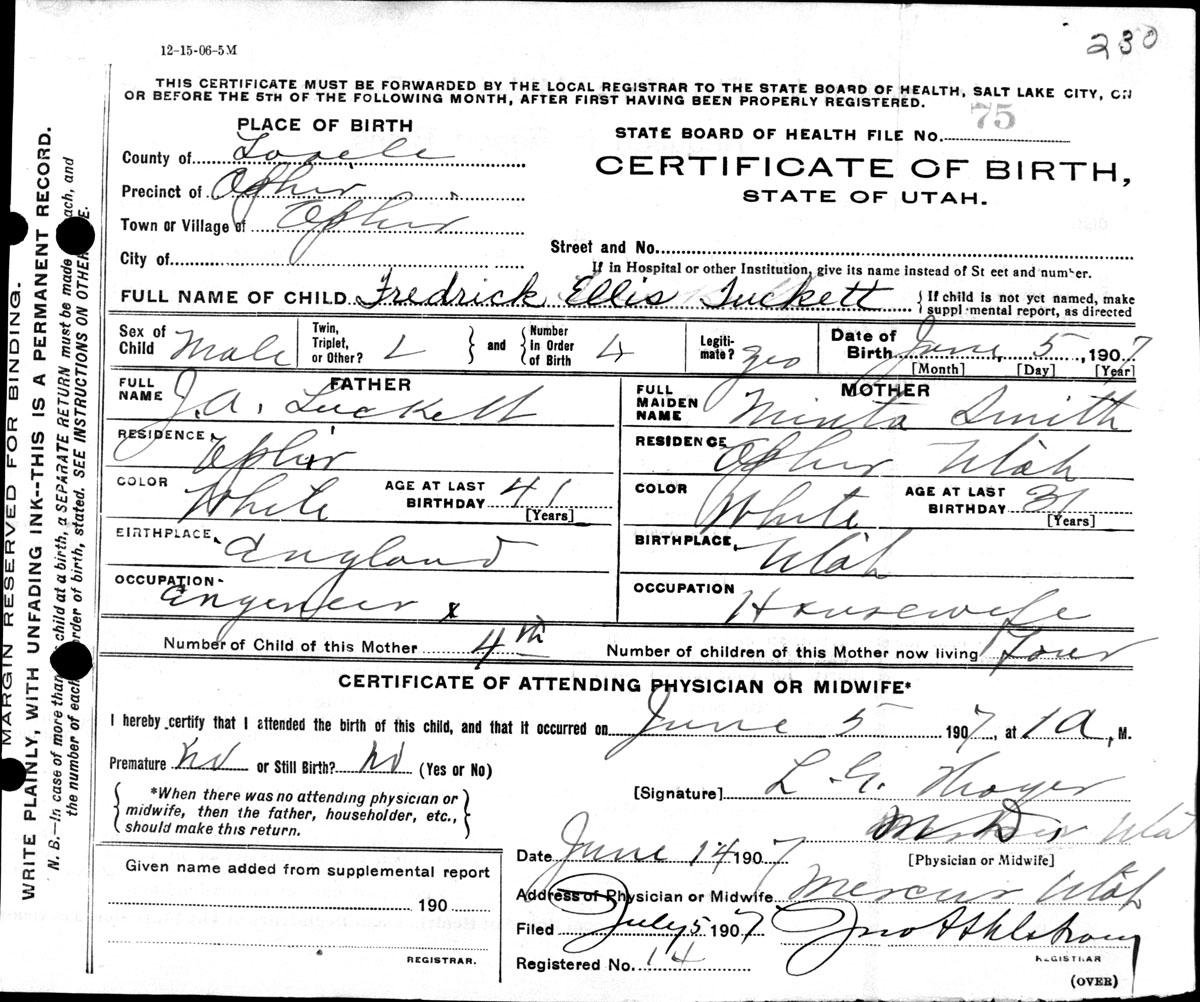 12-15-06-5M
230
THIS CERTIFICATE MUST BE FORWARDED BY THE LOCAL REGISTRAR TO THE STATE BOARD OF HEALTH, SALT LAKE CITY, ON
OR BEFORE THE 5TH OF THE FOLLOWING MONTH, AFTER FIRST HAVING BEEN PROPERLY REGISTERED.
PLACE OF BIRTH
STATE BOARD OF HEALTH FILE No. 75
County of Tooele
CERTIFICATE OF BIRTH,
Precinct of Ophir
STATE OF UTAH.
Town or Village of Ophir
Street and No.
City of
If in Hospital or other Institution, give its name instead of St eet and number.
FULL NAME OF CHILD Fredrick Ellis Tuckett { If child is not yet named, make
suppl mental report, as directed
Sex of Child Male | Twin, Triplet, or Other? } and { Number In Order of Birth 4 | Legiti-mate? yes | Date of Birth June 5, 1907
[Month] [Day] [Year]
FATHER
MOTHER
FULL NAME J. A. Tuckett
FULL MAIDEN NAME Minta Smith
RESIDENCE Ophir
RESIDENCE Ophir Utah
COLOR White AGE AT LAST BIRTHDAY 41 [Years]
COLOR White AGE AT LAST BIRTHDAY 31 [Years]
BIRTHPLACE, England
BIRTHPLACE, Utah
OCCUPATION Engeneer x
OCCUPATION Housewife
Number of Child of this Mother 4th Number of children of this Mother now living Four
CERTIFICATE OF ATTENDING PHYSICIAN OR MIDWIFE*
I hereby certify that I attended the birth of this child, and that it occurred on June 5 1907, at 1 A, M.
Premature No or Still Birth? No (Yes or No)
[Signature] L. G. Thayer
*When there was no attending physician or
midwife, then the father, householder, etc.,
should make this return.
Date June 14 1907
[Physician or Midwife]
Given name added from supplemental report
190
REGISTRAR.
Address of Physician or Midwife Mercur Utah
Filed July 5 1907 Jno A Ahlstrom
REGISTRAR
Registered No. 14
(OVER)
MARGIN RESERVED FOR BINDING.
WRITE PLAINLY, WITH UNFADING INK--THIS IS A PERMANENT RECORD.
N. B.—In case of more than child at a birth, a SEPARATE RETURN must be made ach, and
the number of each order of birth, stated. SEE INSTRUCTIONS ON OTHER E.